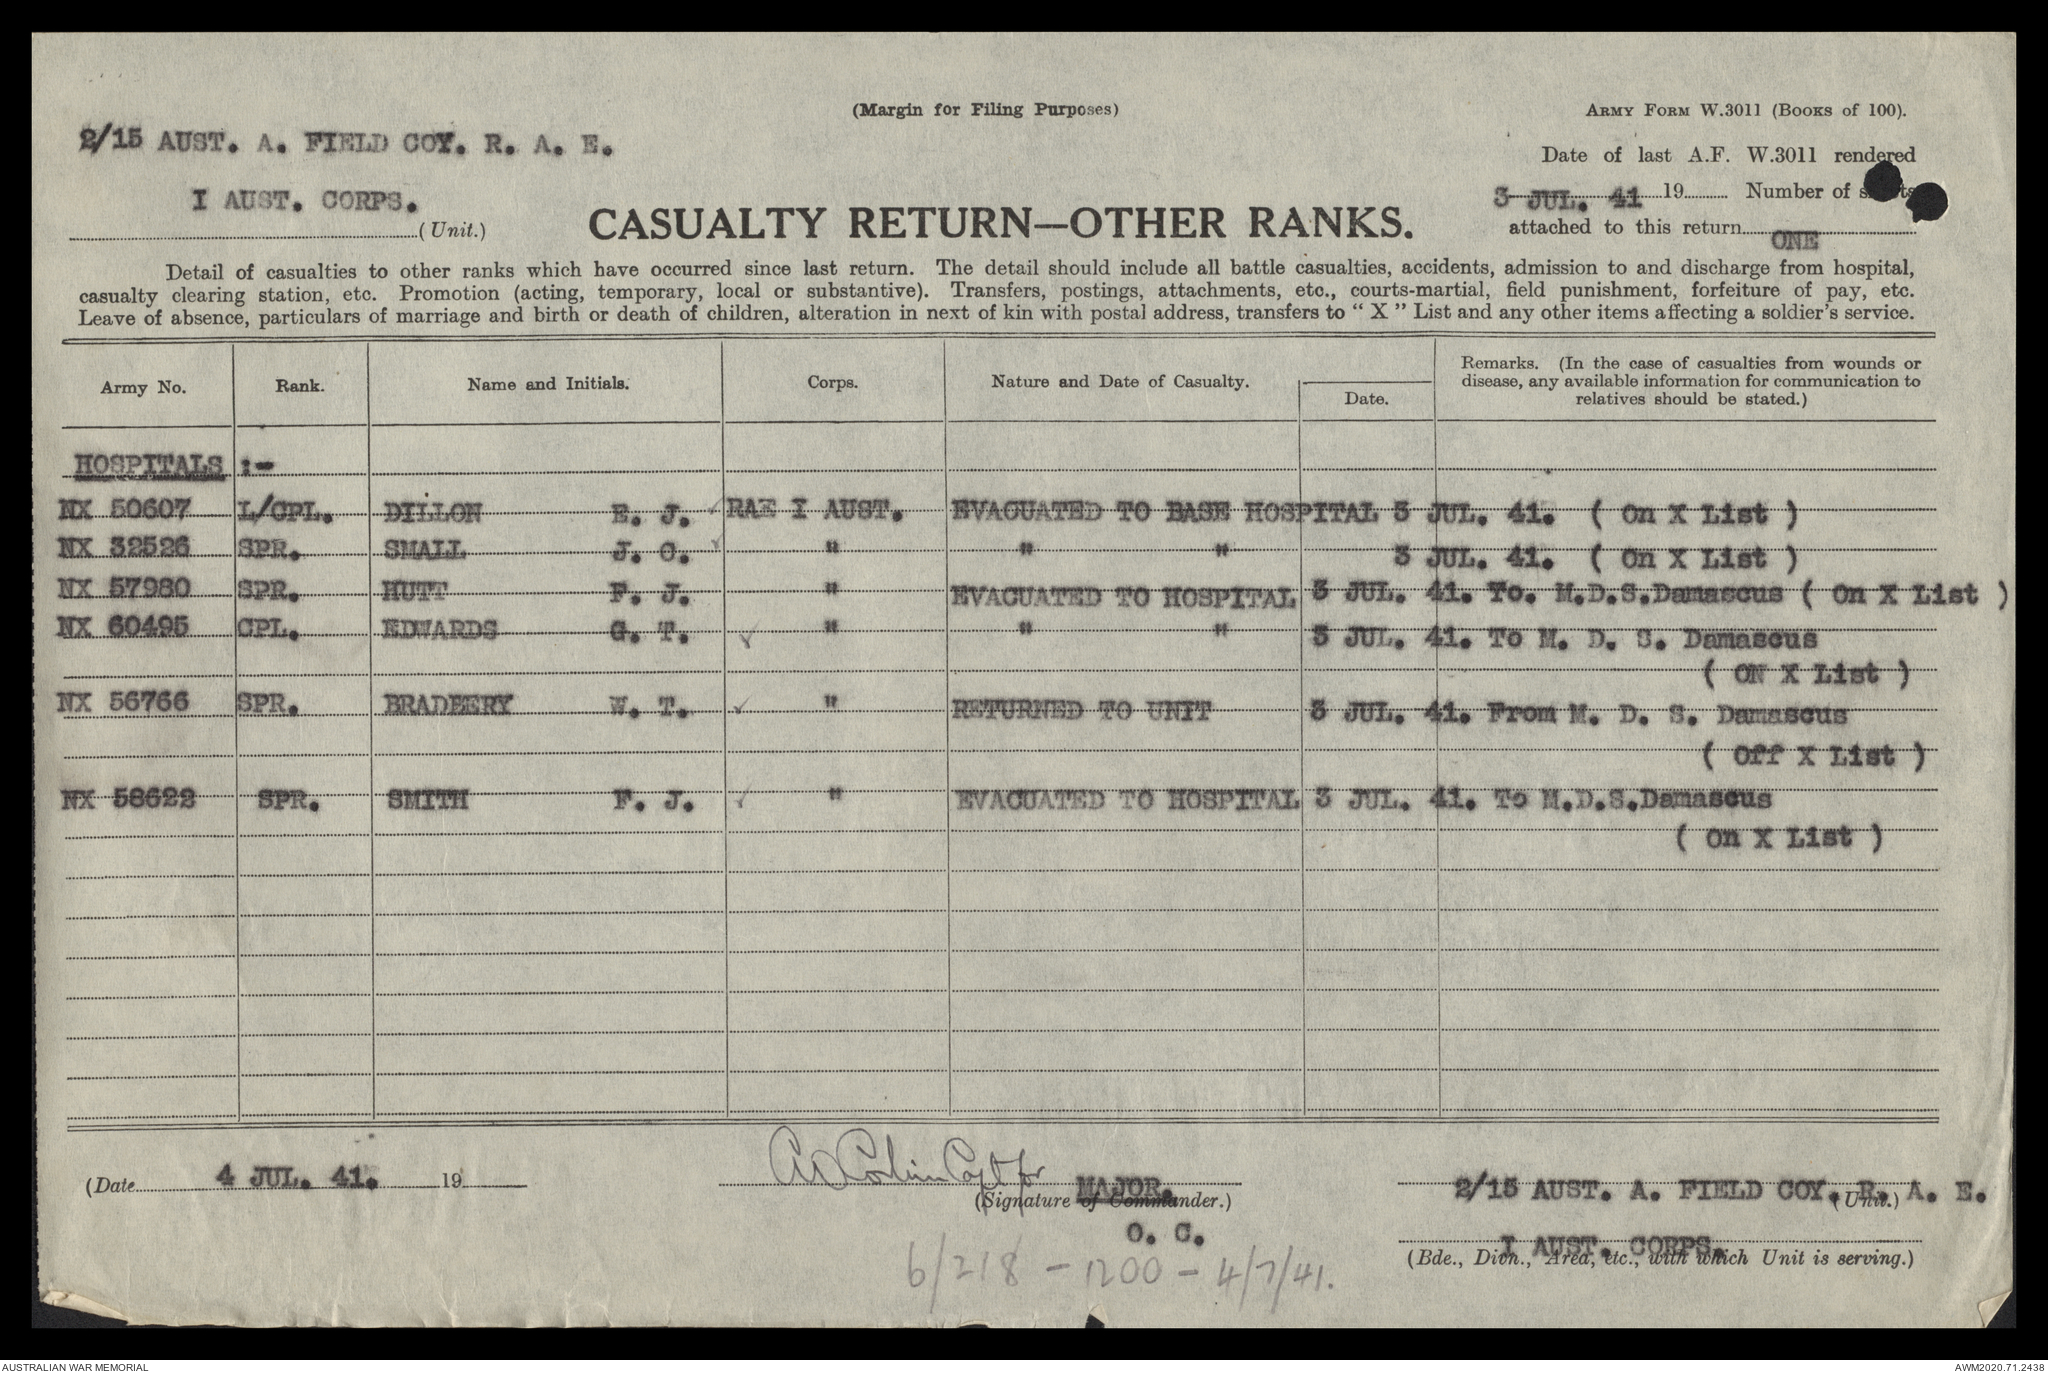 (Margin for Filing Purposes)
ARMY FORM W.3011 (BOOKS of 100).
2/15 AUST. A. FIELD COY. R. A. E.
I AUST. CORPS.
(Unit.)
Date of last A.F. W.3011 rendered
3 JUL. 41 19 Number of
attached to this return ONE
CASUALTY RETURN—OTHER RANKS.
Detail of casualties to other ranks which have occurred since last return. The detail should include all battle casualties, accidents, admission to and discharge from hospital,
casualty clearing station, etc. Promotion (acting, temporary, local or substantive). Transfers, postings, attachments, etc., courts-martial, field punishment, forfeiture of pay, etc.
Leave of absence, particulars of marriage and birth or death of children, alteration in next of kin with postal address, transfers to “ X ” List and any other items affecting a soldier's service.
Army No. Rank. Name and Initials. Corps. Nature and Date of Casualty. Date. Remarks. (In the case of casualties from wounds or
disease, any available information for communication to
relatives should be stated.)
HOSPITALS :-
NX 50607 L/CPL. DILLON E. J. RAE I AUST. EVACUATED TO BASE HOSPITAL 3 JUL. 41. ( On X List )
NX 32526 SPR. SMALL J. C. " " " 3 JUL. 41. ( On X List )
NX 57980 SPR. HUTT F. J. " EVACUATED TO HOSPITAL 3 JUL. 41. To. M.D.S.Damascus ( On X List )
NX 60495 CPL. EDWARDS G. T. " " " 3 JUL. 41. To M. D. S. Damascus
( ON X List )
NX 56766 SPR. BRADBERY W. T. " RETURNED TO UNIT 3 JUL. 41. From M. D. S. Damascus
( Off X List )
NX 58622 SPR. SMITH F. J. " EVACUATED TO HOSPITAL 3 JUL. 41. To M.D.S.Damascus
( On X List )
(Date 4 JUL. 41. 19
Capt for MAJOR.
(Signature of Commander.)
O. C.
2/15 AUST. A. FIELD COY. R. A. E.
(Unit.)
I AUST. CORPS.
(Bde., Divn., Area, etc., with which Unit is serving.)
6/218 - 1200 - 4/7/41.
AUSTRALIAN WAR MEMORIAL
AWM2020.71.2438